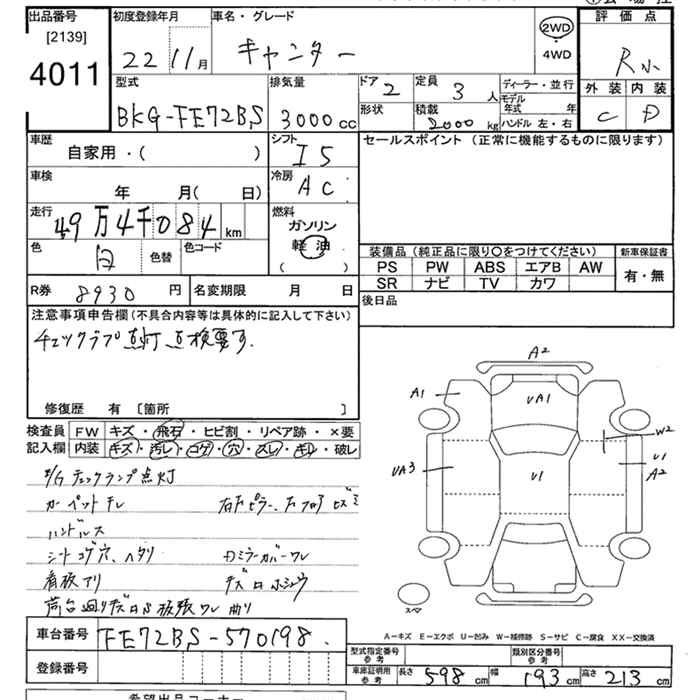 出品番号
[2139]
4011
初度登録年月
22 11月
車名・グレード
キャンター
2WD
4WD
評価点
R小
外装 内装
C D
型式
BKG-FE72BS
排気量
3000cc
ドア 2
形状
定員 3人
積載 2000kg
ディーラー・並行
モデル年式 年
ハンドル 左・右
車歴
自家用・( )
シフト
I5
セールスポイント (正常に機能するものに限ります)
車検
年 月( 日)
冷房
AC
走行
49万4千084km
燃料
ガソリン
軽油
( )
色
白
色替
色コード
装備品 (純正品に限り○をつけてください)
PS PW ABS エアB AW
SR ナビ TV カワ
新車保証書
有・無
R券 8930円
名変期限 月 日
後日品
注意事項申告欄(不具合内容等は具体的に記入して下さい)
チェックランプ点灯 点検要す.
修復歴 有 [箇所 ]
検査員記入欄
FW キズ・飛石・ヒビ割・リペア跡・×要
内装 キズ・汚レ・コゲ・穴・スレ・キレ・破レ
チェックランプ点灯
カーペットキレ
ハンドルス
シートコゲ穴、ヘタリ
看板アリ
A2
A1
UA1
W2
UA3
U1
U1
A2
スペア
A-キズ E-エクボ U-凹み W-補修跡 S-サビ C-腐食 XX-交換済
車台番号
FE72BS-570198.
登録番号
型式指定番号
参考
類別区分番号
参考
車庫証明用
参考
長さ 598cm
幅 193cm
高さ 213cm
希望出品コーナー